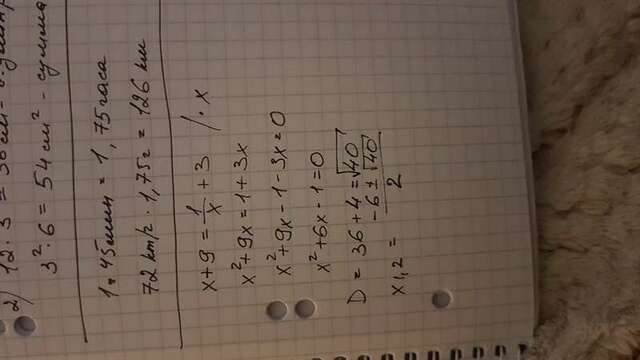 2) 12 · 3 = 36 см -
3² · 6 = 54 см² - сумма
1ч 45мин = 1,75часа
72 km/г · 1,75г = 126 км
x+9 = 1/x + 3 | · x
x²+9x = 1+3x
x²+9x-1-3x=0
x²+6x-1=0
D = 36+4=√40
x1,2 = (-6±√40)/2